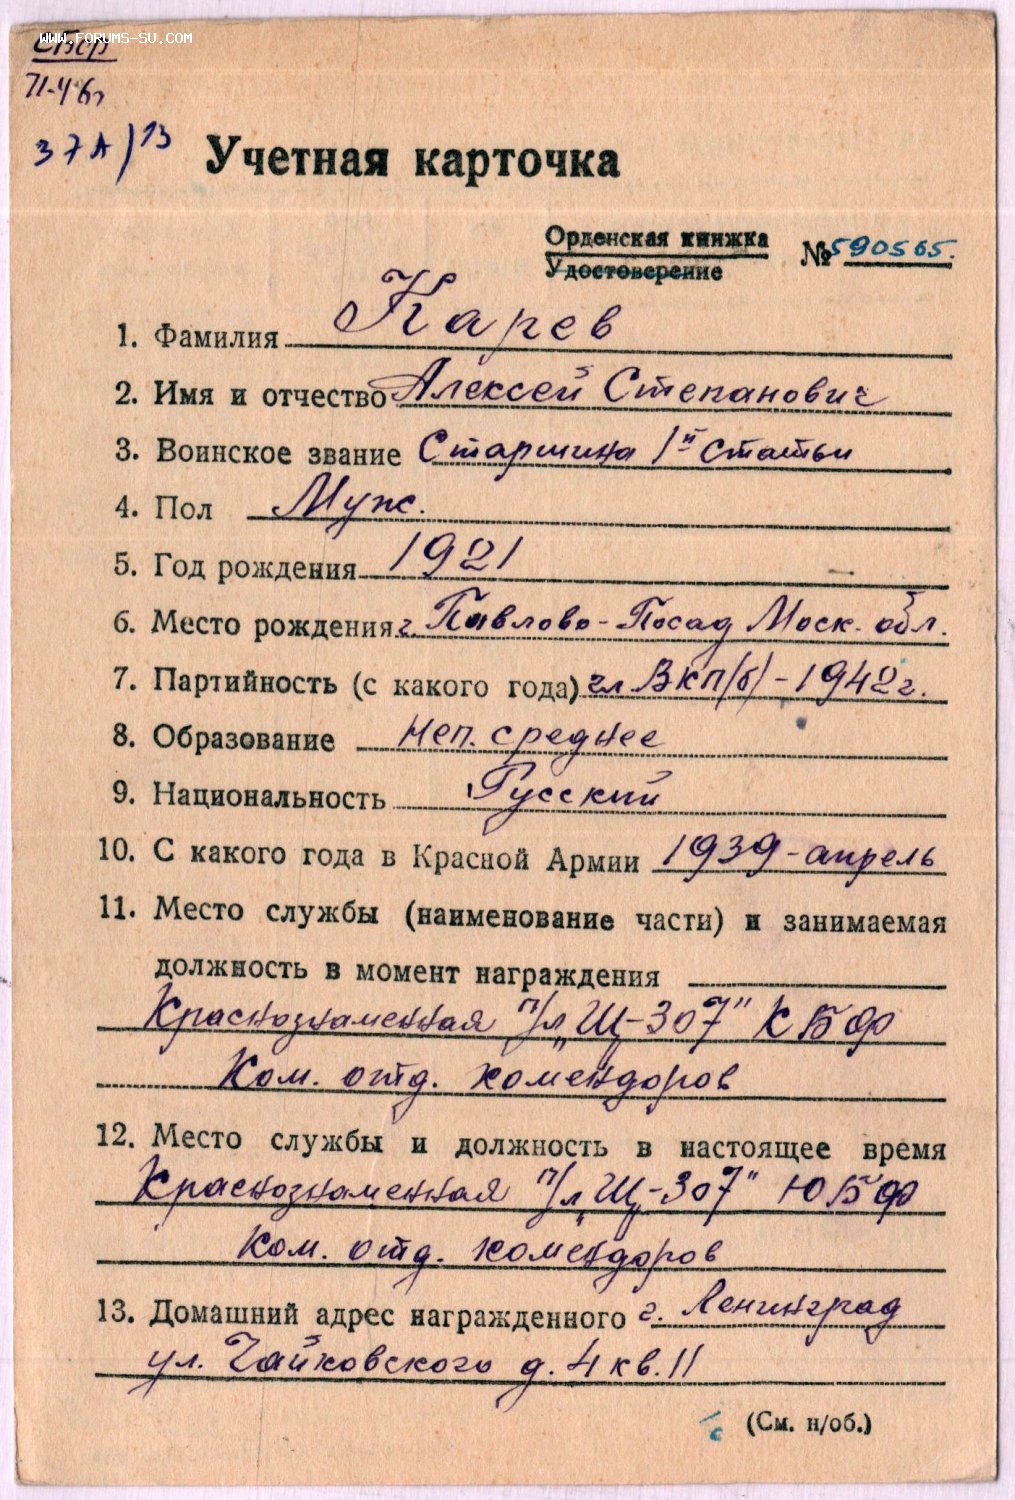 www.forums-su.com
37А/13
Учетная карточка
Орденская книжка
Удостоверение
№ 590565.
1. Фамилия Карев
2. Имя и отчество Алексей Степанович
3. Воинское звание Старшина 1й статьи
4. Пол Муж.
5. Год рождения 1921
6. Место рождения г. Павлово-Посад Моск. обл.
7. Партийность (с какого года) чл ВКП(б) - 1942 г.
8. Образование Неп. среднее
9. Национальность Русский
10. С какого года в Красной Армии 1939 - апрель
11. Место службы (наименование части) и занимаемая
должность в момент награждения
Краснознаменная п/л „Щ-307" КБФ
Ком. отд. комендоров
12. Место службы и должность в настоящее время
Краснознаменная п/л „Щ-307" ЮБФ
Ком. отд. комендоров
13. Домашний адрес награжденного г. Ленинград
ул. Чайковского д. 4 кв. 11
(См. н/об.)